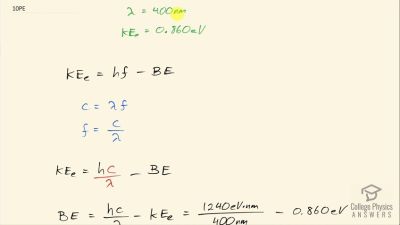 10PE
λ = 400nm
KEₑ = 0.860eV
KEₑ = hf - BE
c = λf
f = c/λ
KEₑ = hc/λ - BE
BE = hc/λ - KEₑ = 1240eV·nm/400nm - 0.860eV
College Physics
ANSWERS